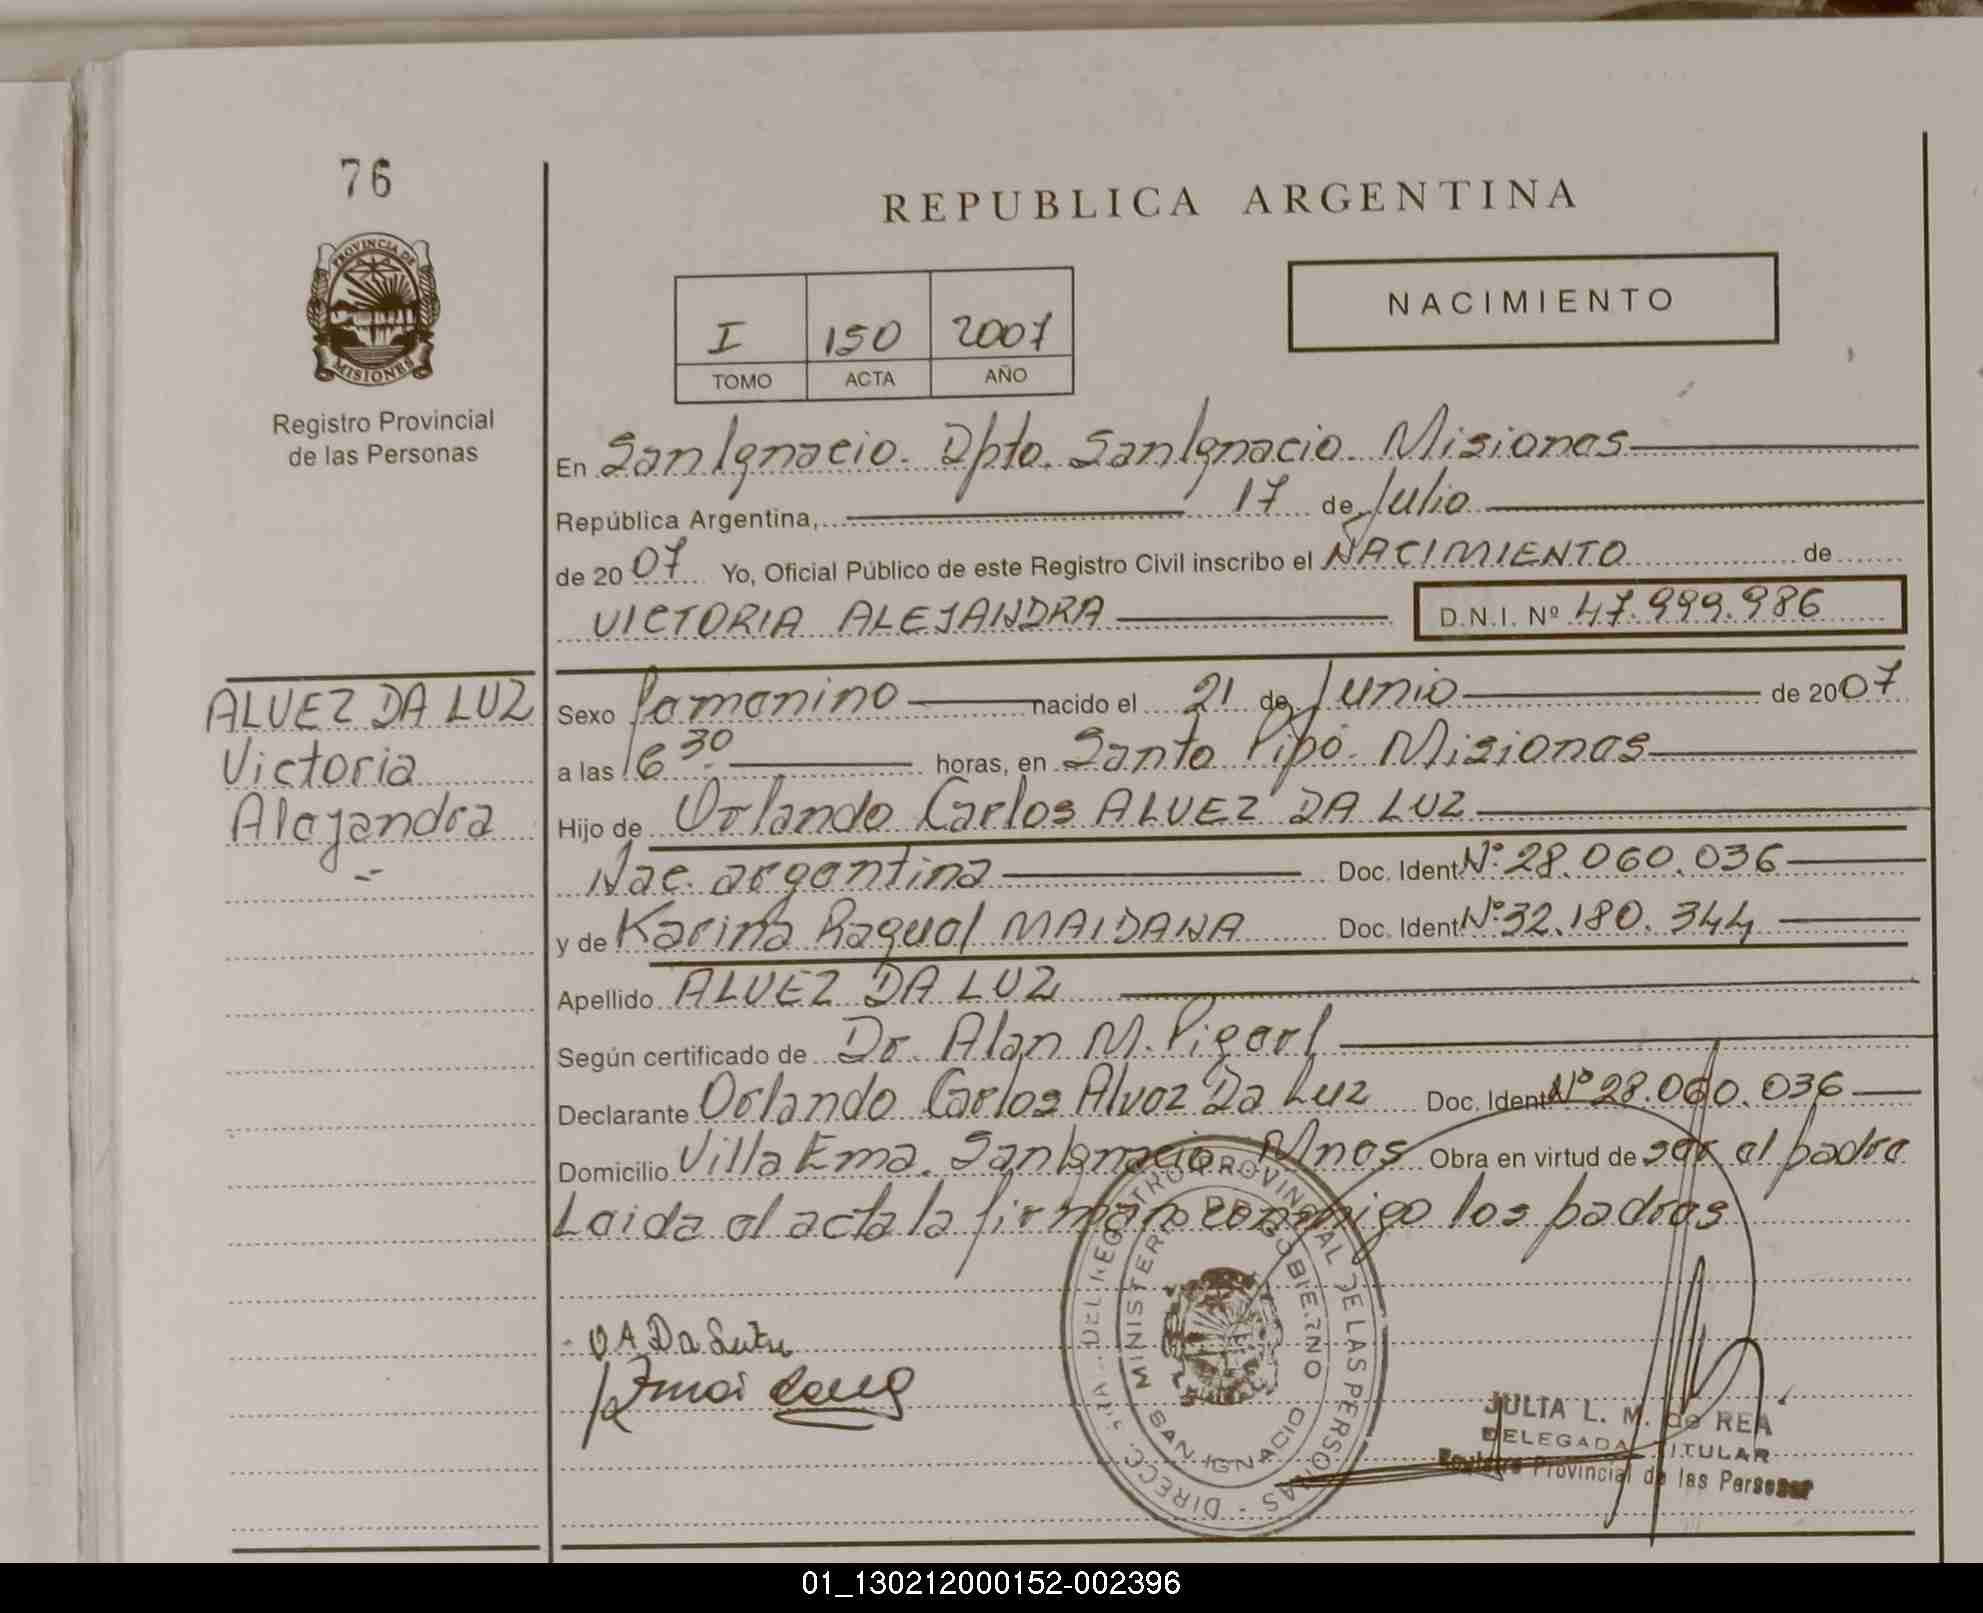 76
REPUBLICA ARGENTINA
PROVINCIA DE
MISIONES
Registro Provincial
de las Personas
NACIMIENTO
I 150 2007
TOMO ACTA AÑO
En San Ignacio. Dpto. San Ignacio. Misiones
República Argentina, 17 de Julio
de 2007 Yo, Oficial Público de este Registro Civil inscribo el NACIMIENTO de
VICTORIA ALEJANDRA D.N.I. Nº 47.999.986
ALVEZ DA LUZ
Victoria
Alejandra
Sexo femenino nacido el 21 de Junio de 2007
a las 16 30 horas, en Santo Pipó. Misiones
Hijo de Orlando Carlos ALVEZ DA LUZ
Nac. argentina Doc. Ident. Nº 28.060.036
y de Karina Raquel MAIDANA Doc. Ident. Nº 32.180.344
Apellido ALVEZ DA LUZ
Según certificado de Dr. Alan M.
Declarante Orlando Carlos Alvez Da Luz Doc. Ident. Nº 28.060.036
Domicilio Villa Ema. San Ignacio Mnes Obra en virtud de ser el padre
Leida el acta la firman conmigo los padres
DIRECC. DEL REGISTRO PROVINCIAL DE LAS PERSONAS
MINISTERIO DE GOBIERNO
SAN IGNACIO
JULIA L. M. de REA
DELEGADA TITULAR
Registro Provincial de las Personas
01_130212000152-002396